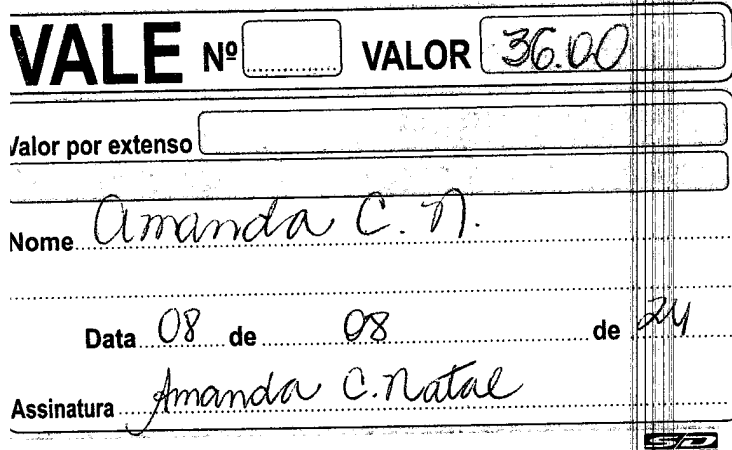 VALE Nº VALOR 36.00
Valor por extenso
Nome Amanda C. N.
Data 08 de 08 de 24
Assinatura Amanda C. Natal
SD